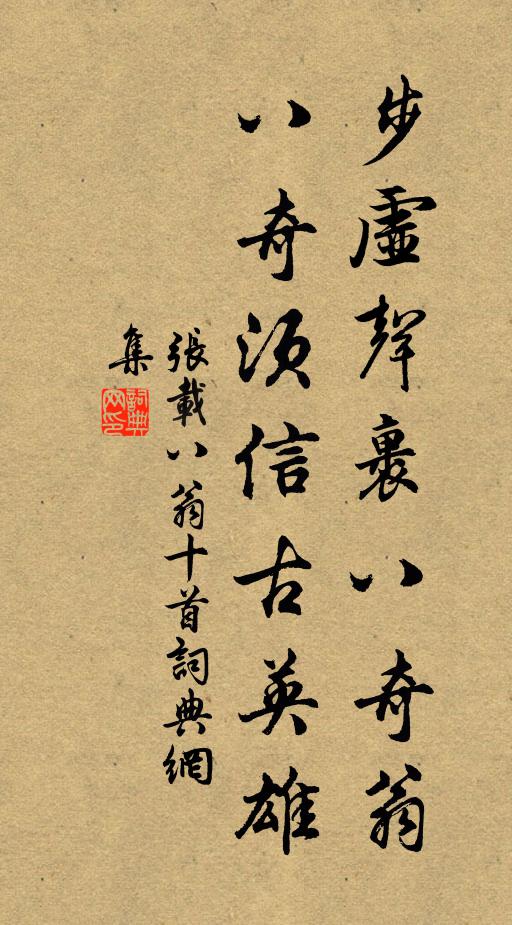 步虛聲裏八奇翁
八奇須信古英雄
張載八翁十首詞典網
集
詞典網印